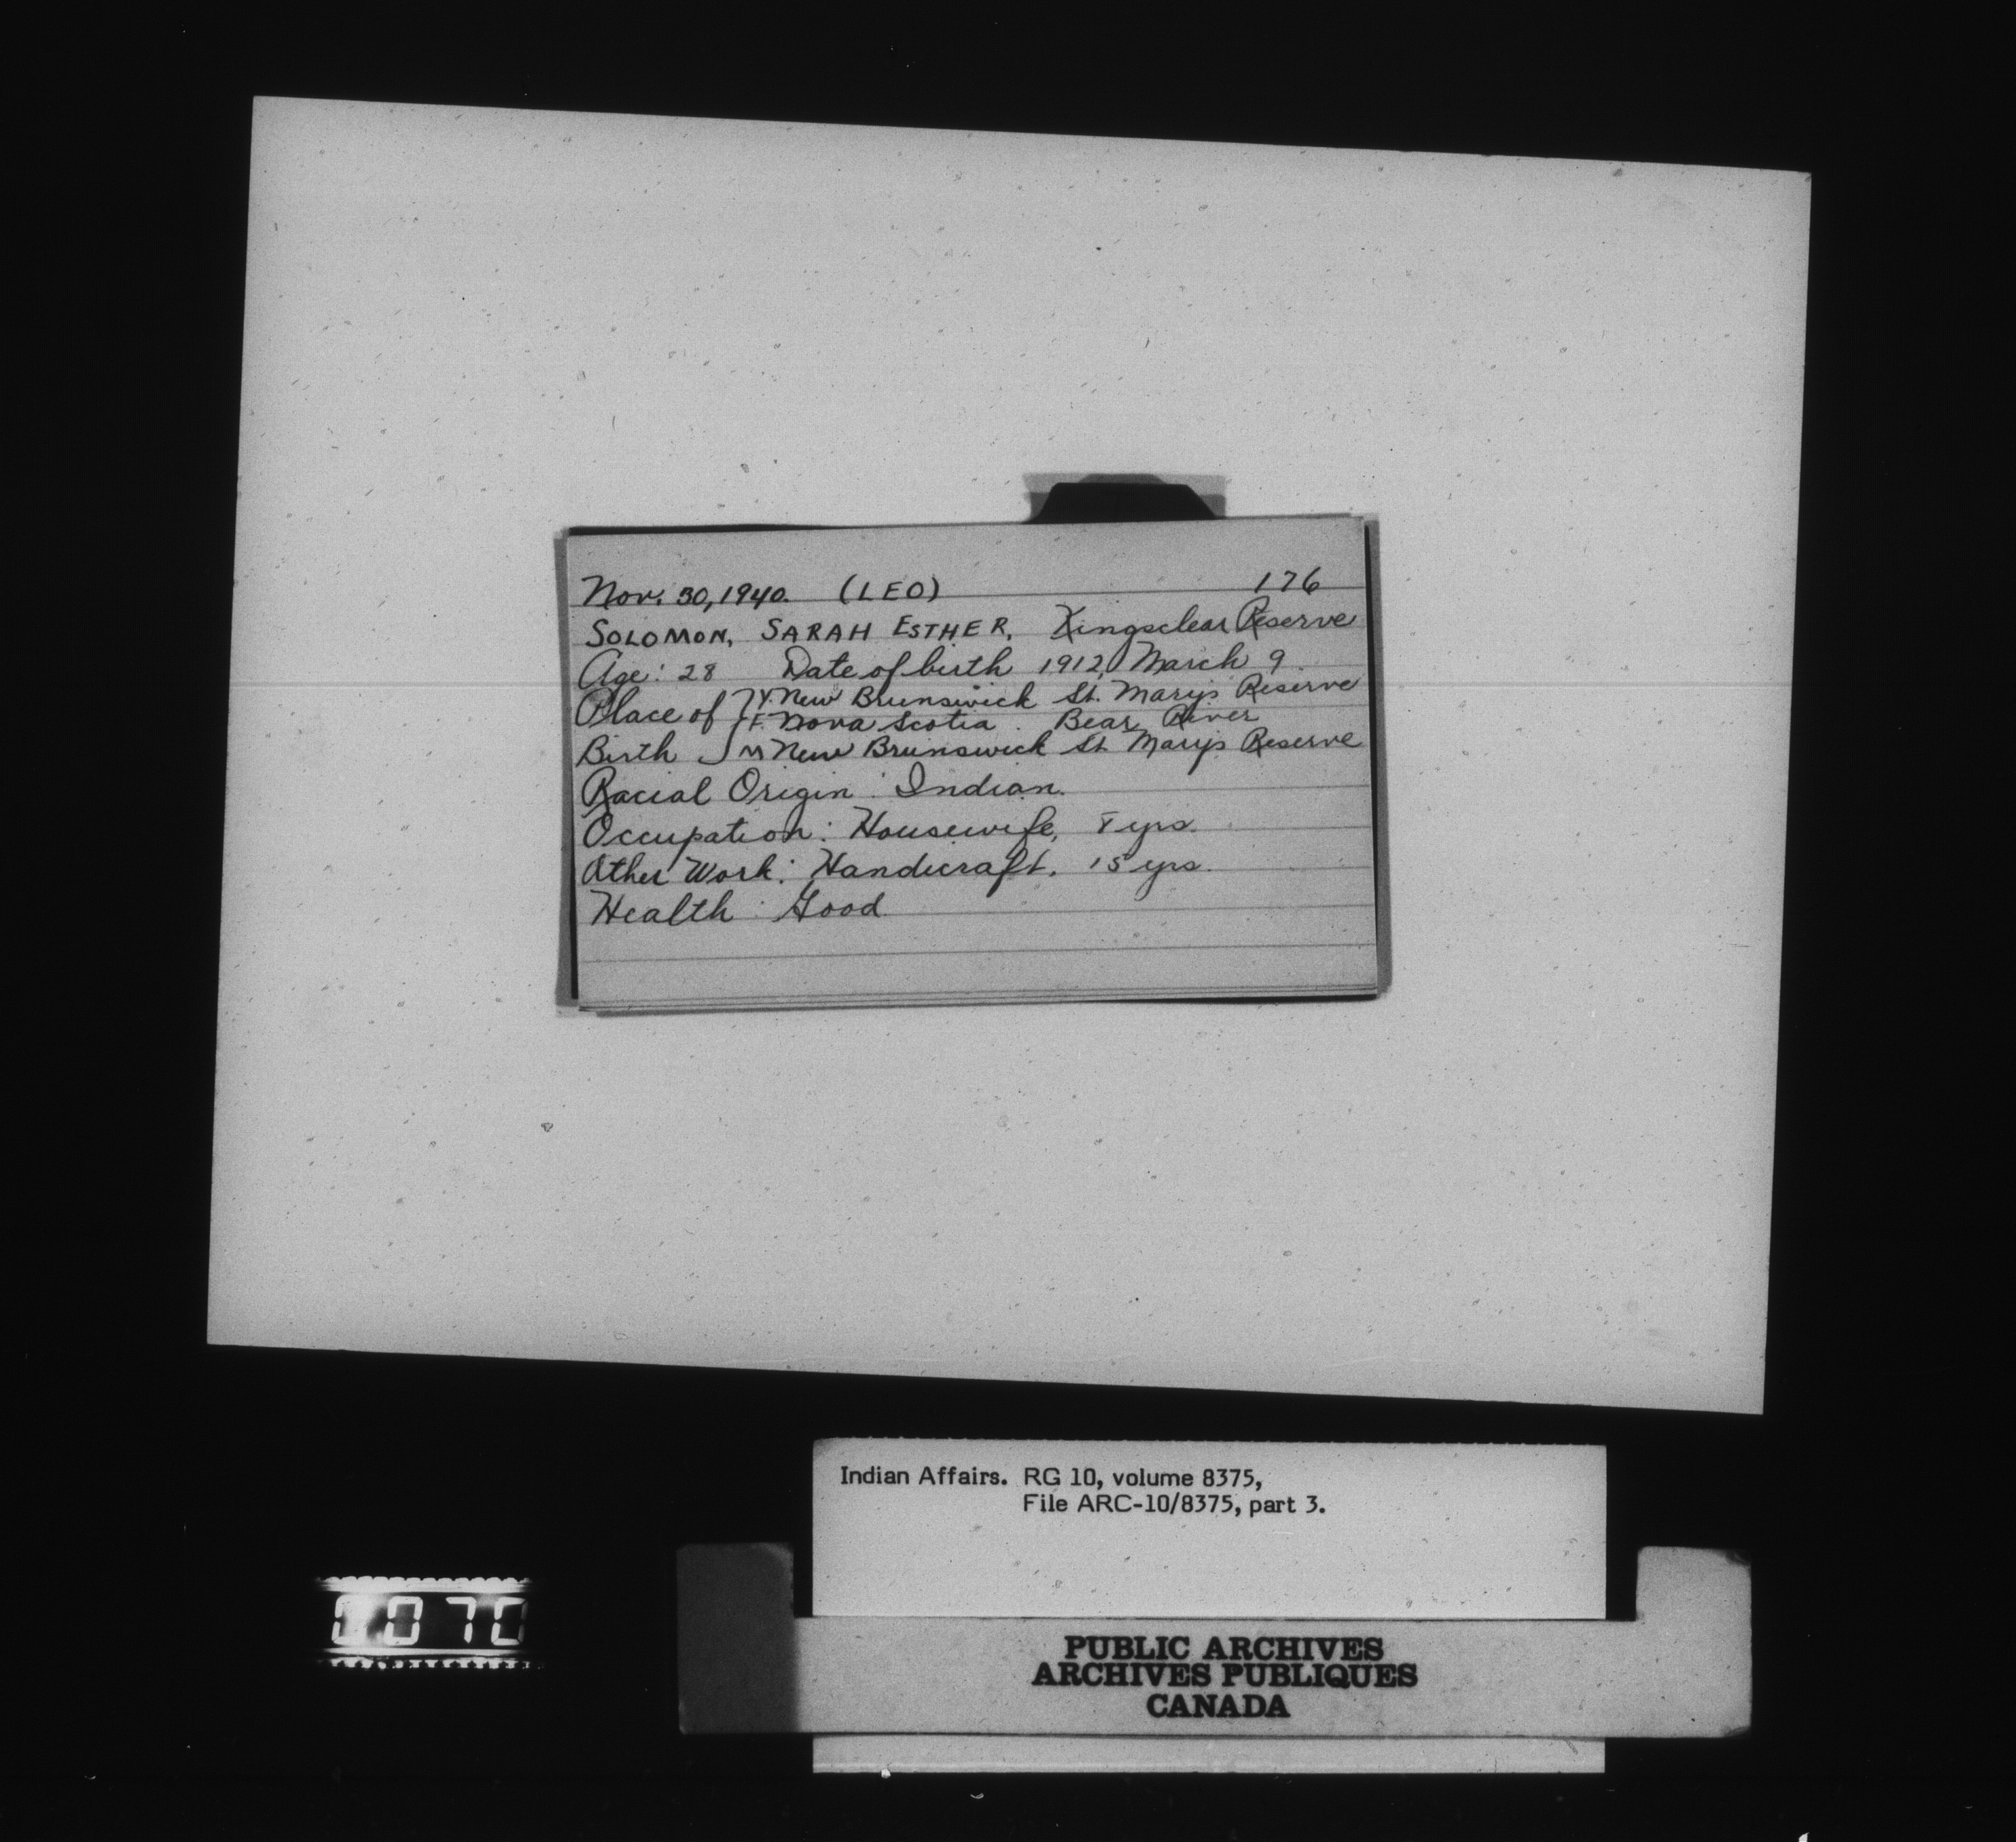 Nov. 30, 1940. (LEO) 176
SOLOMON, SARAH ESTHER. Kingsclear Reserve
Age: 28 Date of birth 1912, March 9.
Place of Y. New Brunswick St. Marys Reserve
F. Nova Scotia. Bear River
Birth M New Brunswick St. Marys Reserve
Racial Origin: Indian.
Occupation: Housewife, 8 yrs.
Other Work: Handicraft. 15 yrs.
Health: Good
Indian Affairs. RG 10, volume 8375,
File ARC-10/8375, part 3.
0070
PUBLIC ARCHIVES
ARCHIVES PUBLIQUES
CANADA